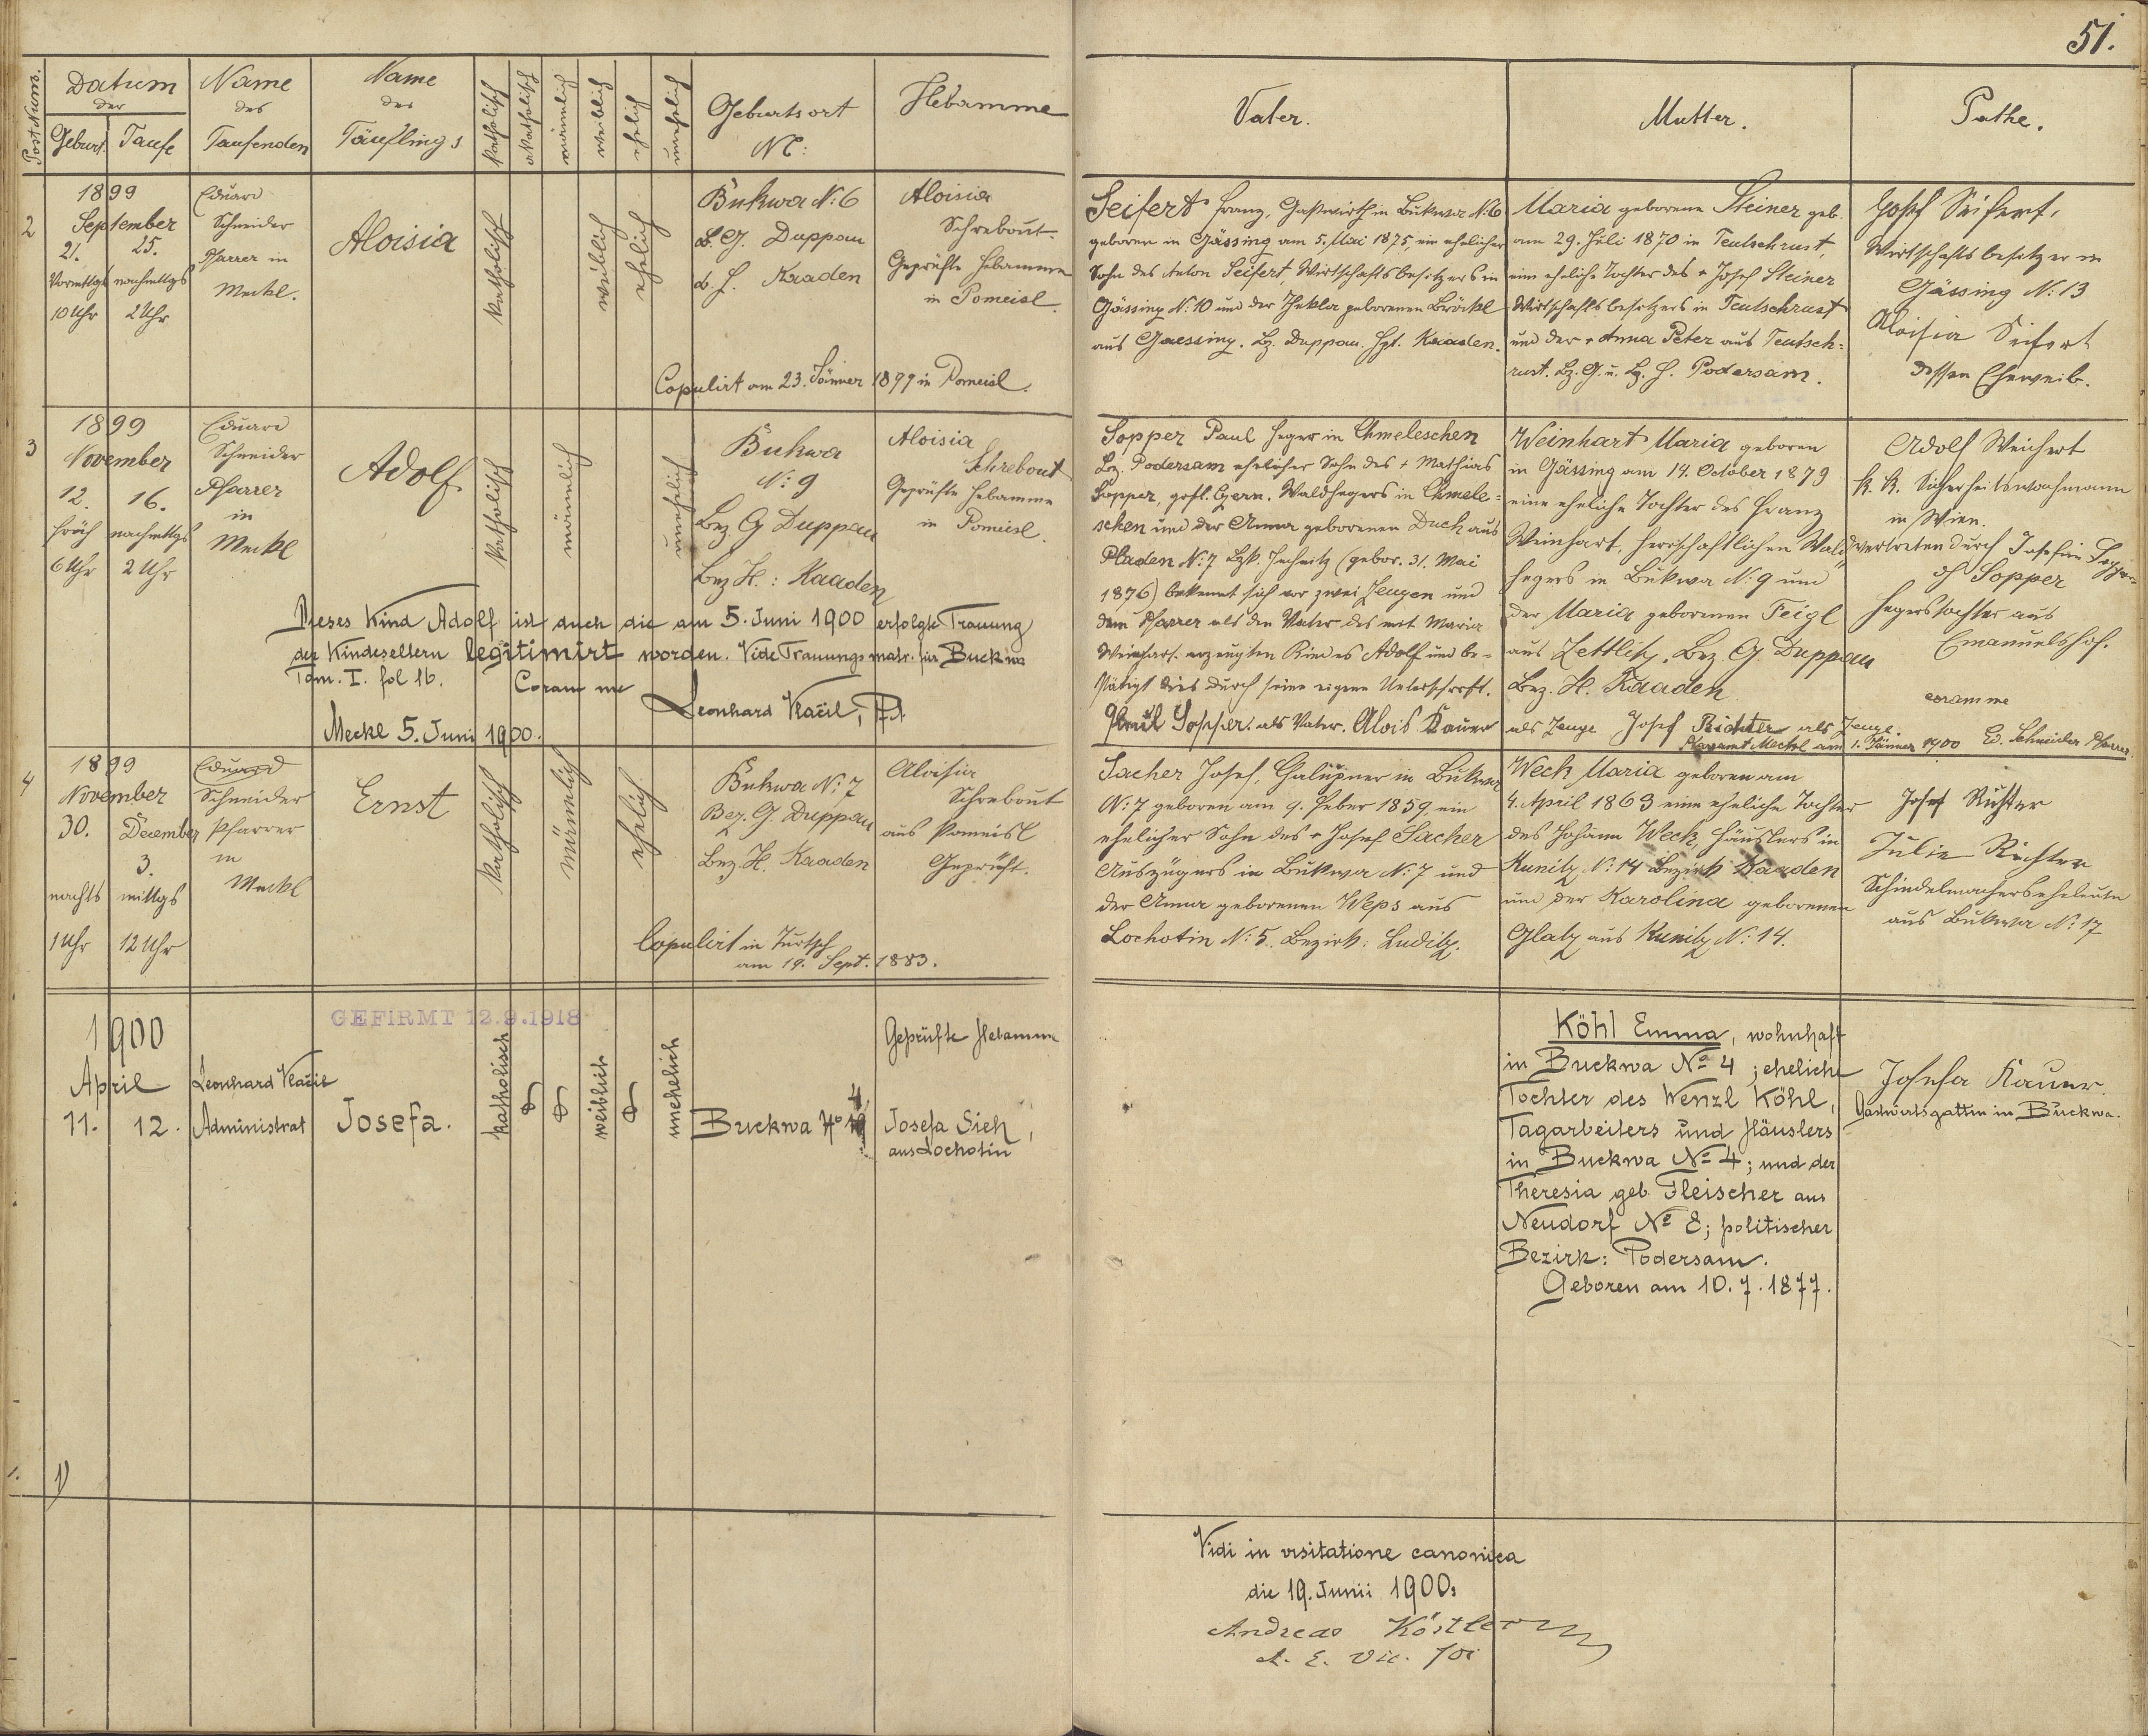 51.
Post Num.
Datum
der
Geburt
Taufe
Name
des
Taufenden
Name
des
Täuflings
Katholisch
Akatholisch
männlich
weiblich
ehelich
unehelich
Geburtsort
N<sup>o</sup>:
Hebamme
Vater.
Mutter.
Pathe.
2
1899
September
21. 25.
Vormttgs nachmttgs
10 Uhr 2 Uhr
Eduard
Schneider
Pfarrer in
Meckl.
Aloisia
Katholisch
weiblich
ehelich
Bukwa N: 6
b. G. Duppau
b. H. Kaaden
Copulirt am 23. Jänner 1899 in Pomeisl.
Aloisia
Schrebout.
Geprüfte Hebamme
in Pomeisl.
Seifert Franz, Gastwirth in Bukwa N: 6
geboren in Gässing am 5. Mai 1875, ein ehelicher
Sohn des Anton Seifert, Wirtschaftsbesitzers in
Gässing N: 10 und der Thekla geborenen Bröckl
aus Gaessing. Bz. Duppau. Hpt. Kaaden.
Maria geborene Steiner geb.
am 29. Juli 1870 in Teutschrust,
eine eheliche Tochter des + Josef Steiner
Wirtschaftsbesitzers in Teutschrust
und der + Anna Peter aus Teutsch=
rust. Bz. G. u. Bz. H. Podersam.
Josef Seifert,
Wirtschaftsbesitzer in
Gässing N: 13
Aloisia Seifert
dessen Eheweib.
3
1899
November
12. 16.
früh nachmttgs
6 Uhr 2 Uhr
Eduard
Schneider
Pfarrer
in
Meckl
Adolf
Katholisch
männlich
unehelich
Bukwa
N: 9
Bez G Duppau
Bez H.: Kaaden
Aloisia
Schrebout
Geprüfte Hebamme
in Pomeisl.
Dieses Kind Adolf ist duch die am 5. Juni 1900 erfolgte Trauung
der Kindeseltern legitimirt worden. Vide Trauungsmatr. für Buckwa
Tom. I. fol 16.
Coram me
Leonhard Vlačil,
Meckl 5. Juni 1900.
Sopper Paul Heger in Chmeleschen
Bez. Podersam ehelicher Sohn des + Mathias
Sopper, gräfl. Czern. Waldhegers in Chmele=
schen und der Anna geborenen Duch aus
Pladen N: 7 Bzk. Jechnitz (gebor. 31. Mai
1876) bekennt sich vor zwei Zeugen und
dem Pfarrer als den Vater des mit Maria
Weinhart erzeugten Kindes Adolf und be=
stätigt dies durch seine eigene Unterschrift.
Paul Sopper als Vater. Alois Kauer als Zeuge Josef Richter als Zeuge.
Pfarramt Meckl am 1. Jänner 1900 Ed. Schneider Pfarrer
Weinhart Maria geboren
in Gässing am 14. October 1879
eine eheliche Tochter des Franz
Weinhart, herrschaftlichen Wald
hegers in Bukwa N: 9 und
der Maria geborenen Feigl
aus Zettlitz. Bez G. Duppau
Bez. H. Kaaden
Adolf Weichert
k. k. Sicherheitswachmann
in Wien.
vertreten durch Josefine
Sopper
Hegerstochter aus
Emanuelshof.
coram me
4
1899
November
30. December
3.
nachts mittgs
1 Uhr 12 Uhr
Eduard
Schneider
Pfarrer
in
Meckl
Ernst
Katholisch
männlich
ehelich
Bukwa N: 7
Bez. G. Duppau
Bez. H. Kaaden
Copulirt in Turtsch
am 19. Sept. 1883.
Aloisia
Schrebout
aus Pomeisl
Geprüft.
Sacher Josef, Galüpner in Bukwa
N: 7 geboren am 9. Feber 1859, ein
ehelicher Sohn des + Josef Sacher
Auszügers in Bukwa N: 7 und
der Anna geborenen Weps aus
Lochotin N: 5. Bezirk: Luditz.
Weck Maria geboren am
4. April 1863 eine eheliche Tochter
des Johann Weck, Häuslers in
Kunitz N: 14 Bezirk Kaaden
und der Karolina geborenen
Glatz aus Kunitz N: 14.
Josef Richter
Julie Richter
Schindelmacherseheleute
aus Bukwa N: 17
1900
April
11. 12.
Leonhard Vlačil
Administrat
GEFIRMT 12.9.1918
Josefa.
katholisch
weiblich
unehelich
Buckwa No 4
Geprüfte Hebamme
Josefa Sieh,
aus Lochotin
Köhl Emma, wohnhaft
in Buckwa No 4; eheliche
Tochter des Wenzl Köhl,
Tagarbeiters und Häuslers
in Buckwa No 4; und der
Theresia geb. Fleischer aus
Neudorf No 8; politischer
Bezirk: Podersam.
Geboren am 10. 7. 1877.
Josefa Kauer
Gastwirtsgattin in Buckwa.
1. 1)
Vidi in visitatione canonica
die 19. Junii 1900.
Andreas Köstler